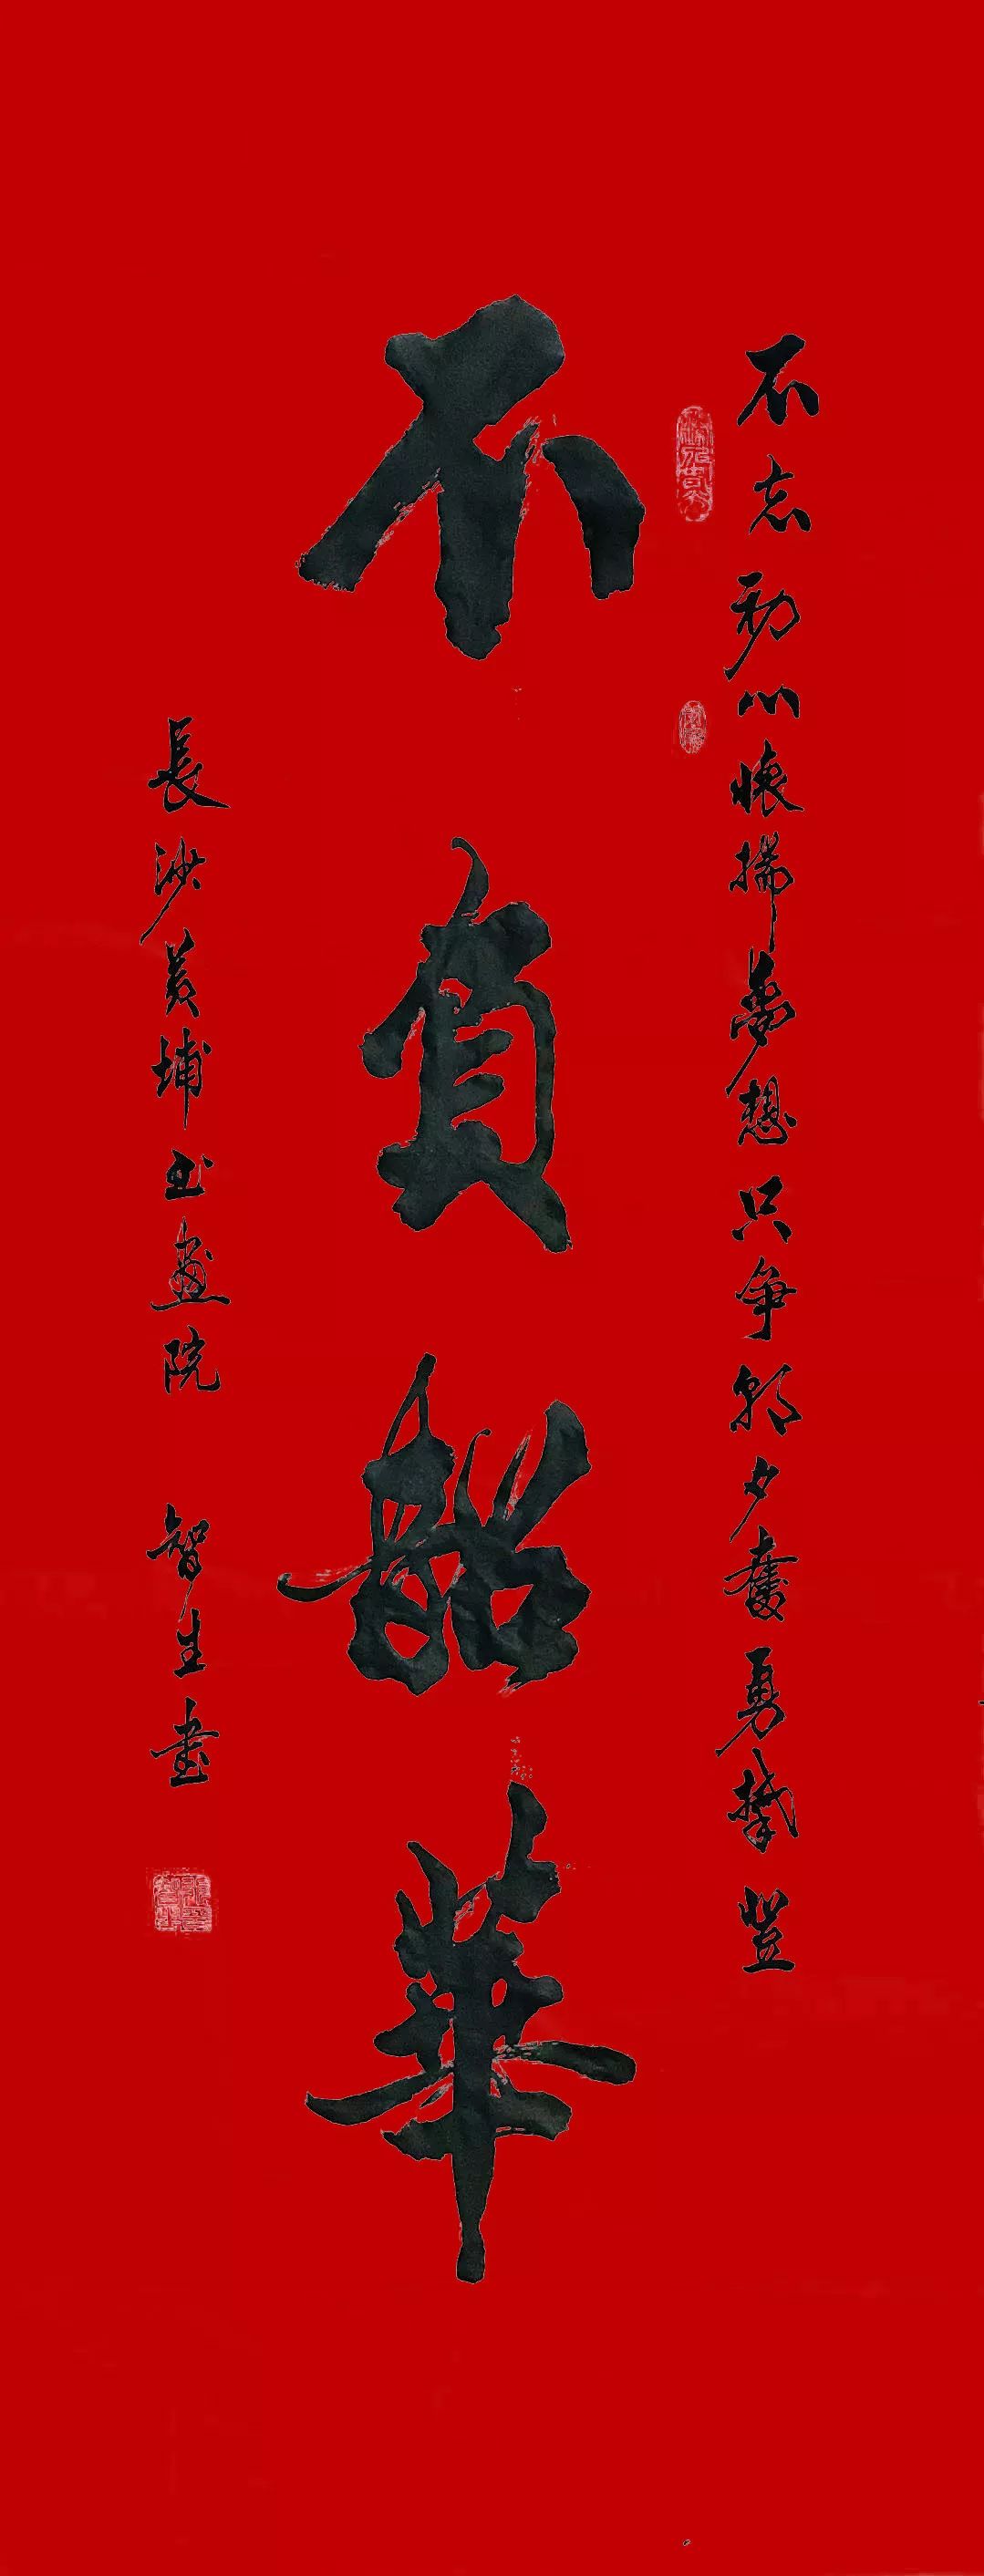 不忘初心懷揣夢想只爭朝夕奮勇攀登
不負韶華
長沙黄埔书畫院 智生書